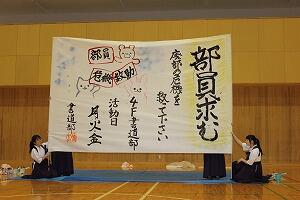 部員求む
廃部の危機を
救て下さい
4F書道部
活動日
月火金
書道部
部員
危機救助